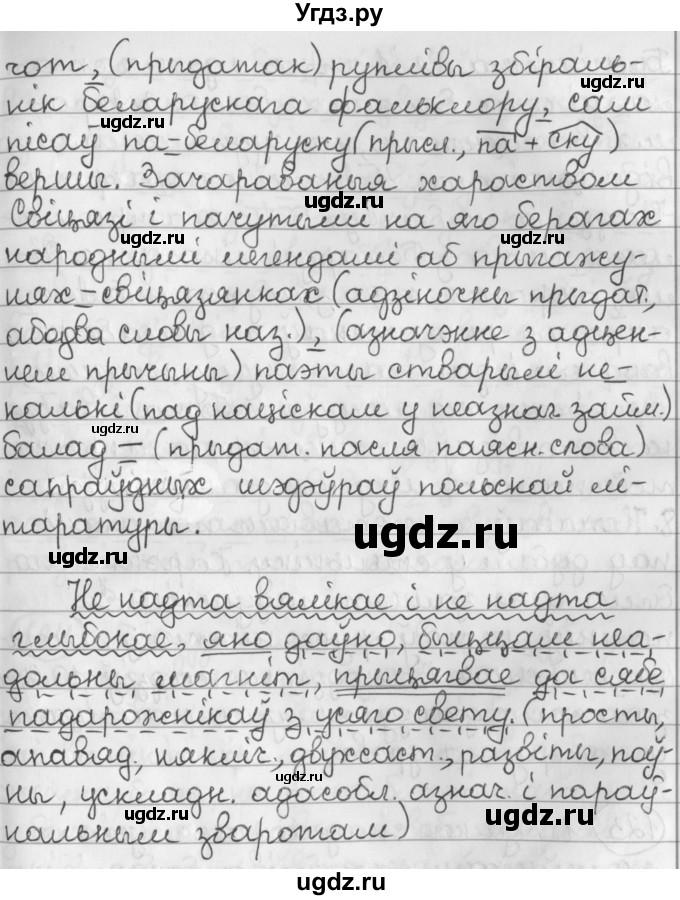 Угдз.ру
чот, (прыдатак) руплівы збіраль-
нік беларускага фальклору, сам
пісаў па-беларуску (прысл., па + ску)
вершы. Зачараваныя хараством
Свіцязі і пачутымі на яго берагах
народнымі легендамі аб прыгажу-
нях-свіцязянках (адзіночны прыдат.,
абодва словы наз.), (азначэнне з адцен-
нем прычыны) паэты стварылі не-
калькі (пад націскам у неазнач. займ.)
балад – (прыдат. пасля паясн. слова)
сапраўдных шэдэўраў польскай лі-
таратуры.
Не надта вялікае і не надта
глыбокае, яно даўно, быццам неа-
дольны магніт, прыцягвае да сябе
падарожнікаў з усяго свету. (просты,
апавяд., няклічн., двухсаст., развіты, поў-
ны, ускладн. адасобл. азнач. і параў-
нальным зваротам)
ugdz.ru
ugdz.ru
ugdz.ru
ugdz.ru
ugdz.ru
ugdz.ru
ugdz.ru
ugdz.ru
ugdz.ru
ugdz.ru
ugdz.ru
ugdz.ru
ugdz.ru
ugdz.ru